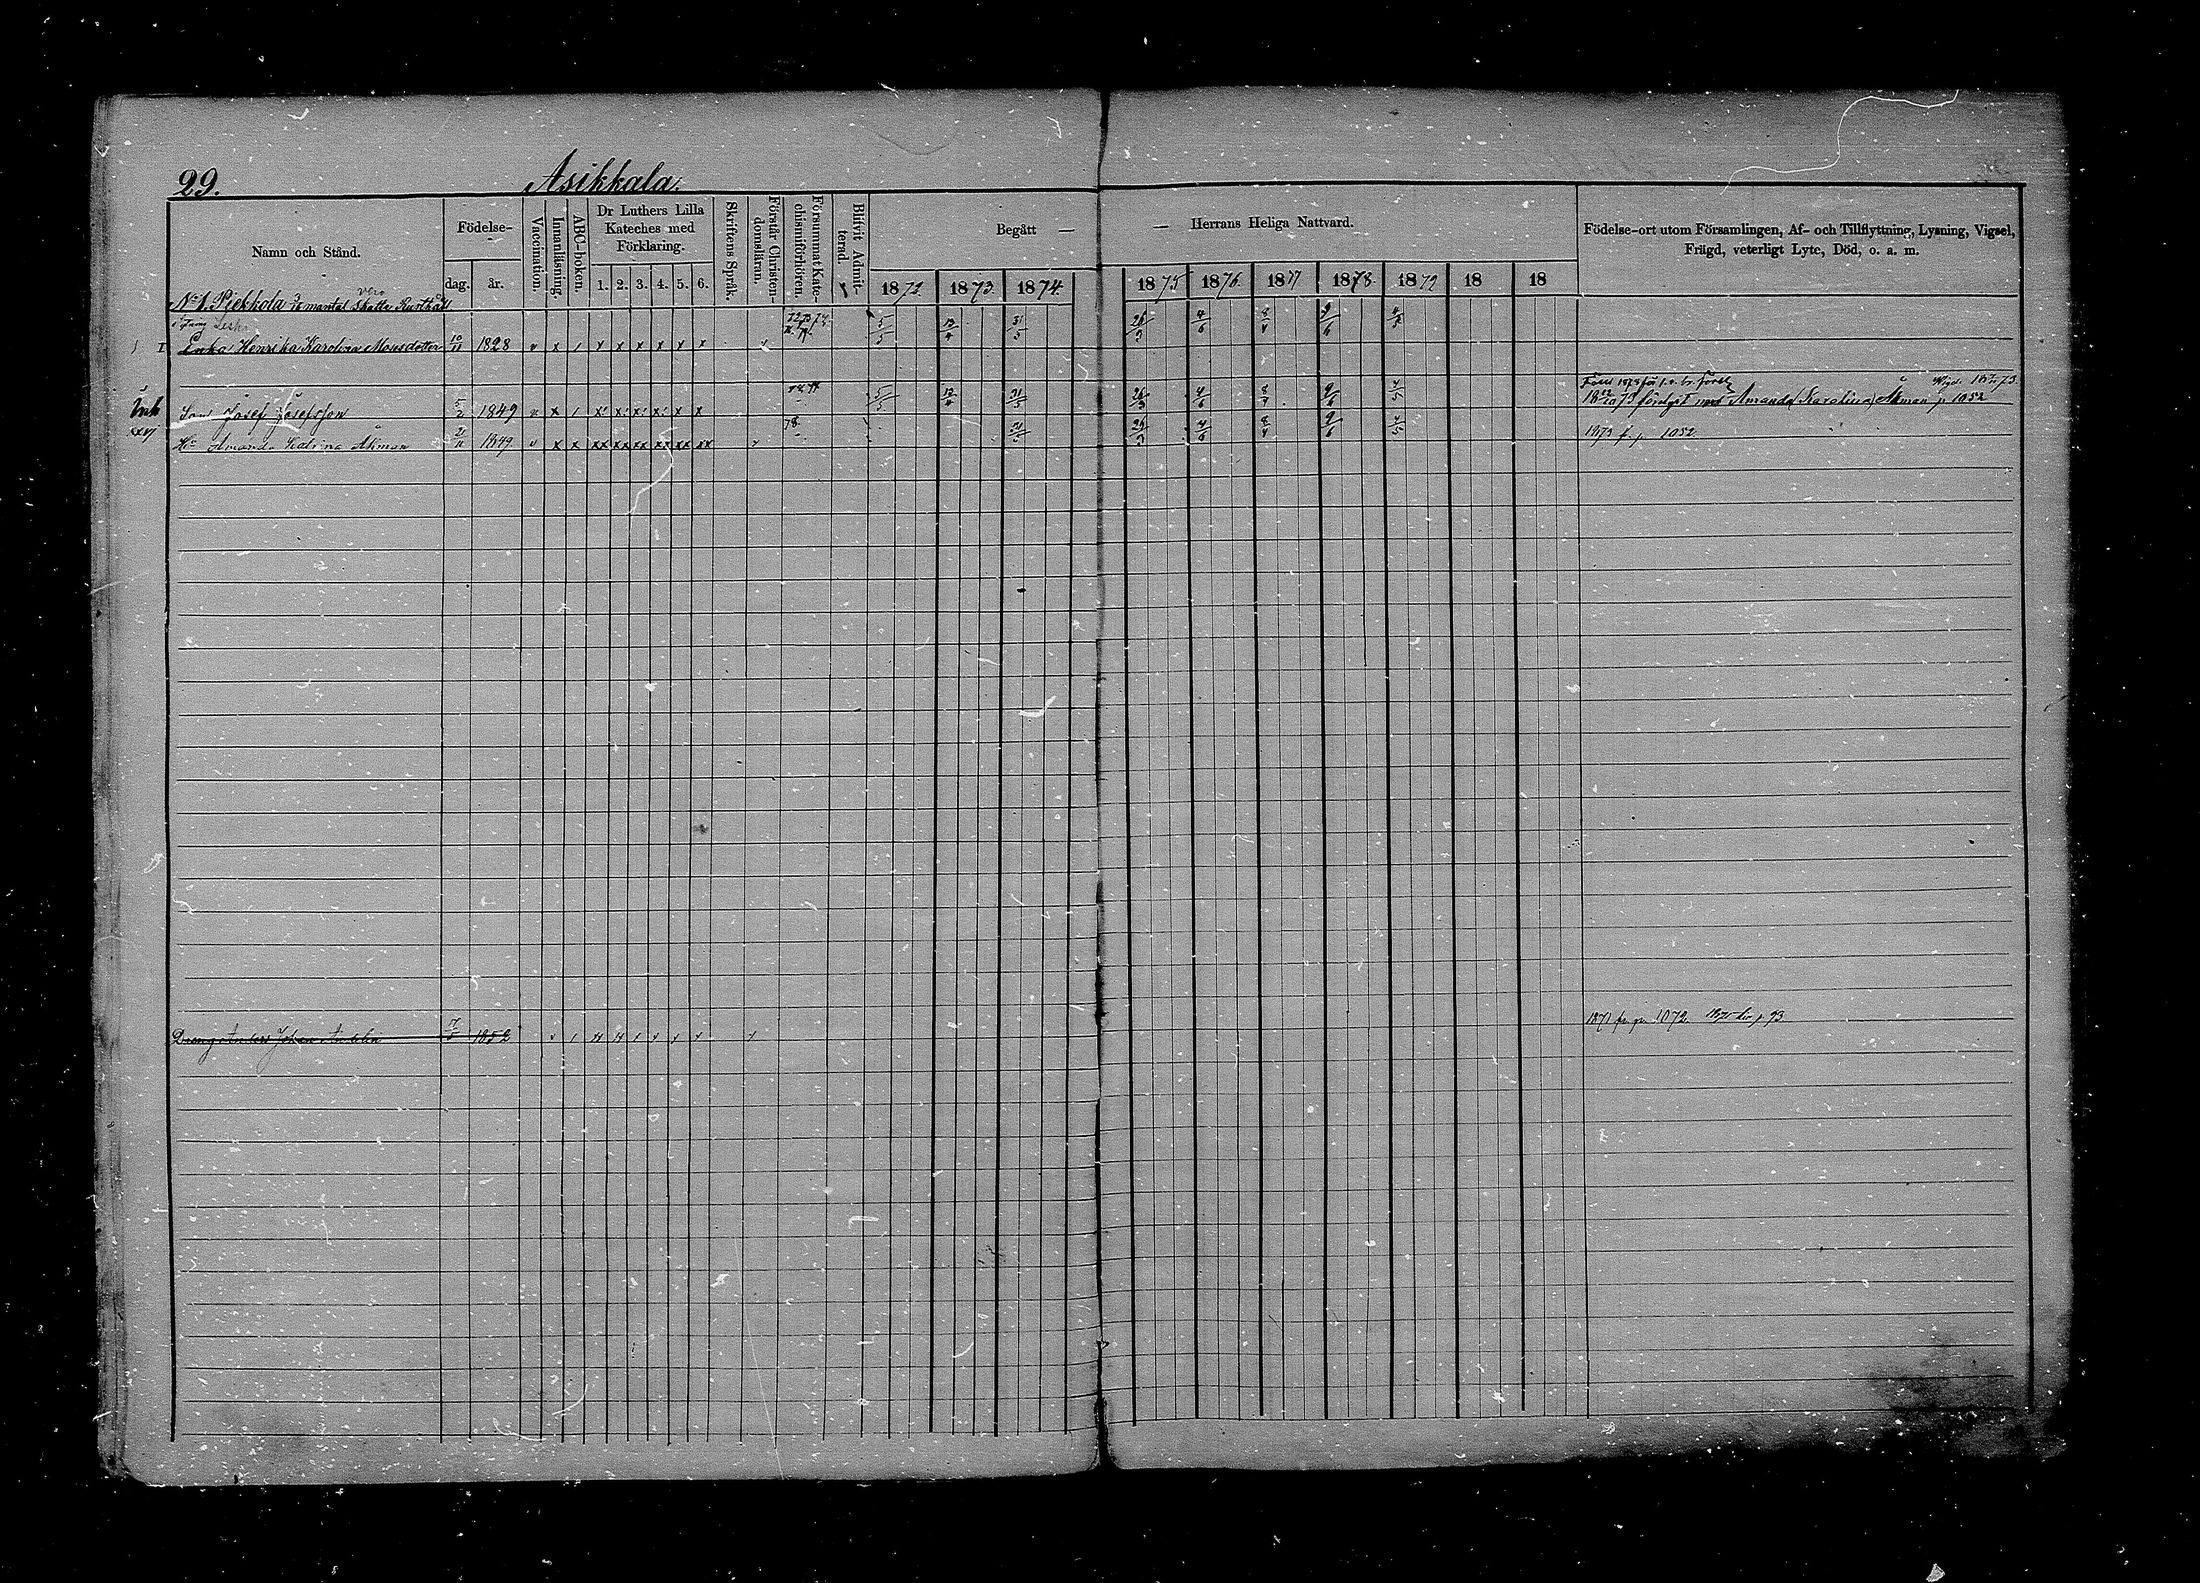 29. Asikkala.
Namn och Stånd.
Födelse-
dag. år.
Vaccination.
Innanläsning.
ABC-boken.
Dr Luthers Lilla
Kateches med
Förklaring.
1. 2. 3. 4. 5. 6.
Skriftens Språk.
Förstår Christen-
domsläran.
Försummat Kate-
chismiförhören.
Blifvit Admit-
terad.
Begått —
— Herrans Heliga Nattvard.
1872. 1873. 1874. 1875 1876. 1877 1878. 1879 18 18
Födelse-ort utom Församlingen, Af- och Tillflyttning, Lysning, Vigsel,
Frägd, veterligt Lyte, Död, o. a. m.
No 1. Piekkola mantal Skatte Rusthåll
Enka Henrika Karolina Monsdotter 10/11 1828 v x 1 x x x x x x
5/5 13/4 31/5 26/3 4/6 8/4 9/6 4/5
Enk
Son Josef Josefsson 5/2 1849 x 1 x x x x x x
5/5 13/4 31/5 26/3 4/6 8/4 9/6 4/5
1873 med Amanda (Karolina) Åkman p 1052
Hu Amanda Karolina Åkman 21/11 1849 v x x xx xx xx xx xx xx
78. 31/5 26/3 4/6 8/4 9/6 4/5
1873 f. p. 1052.
Dreng Anders Johan 17/5 1852
1871 p. 1072. 1875 p. 93